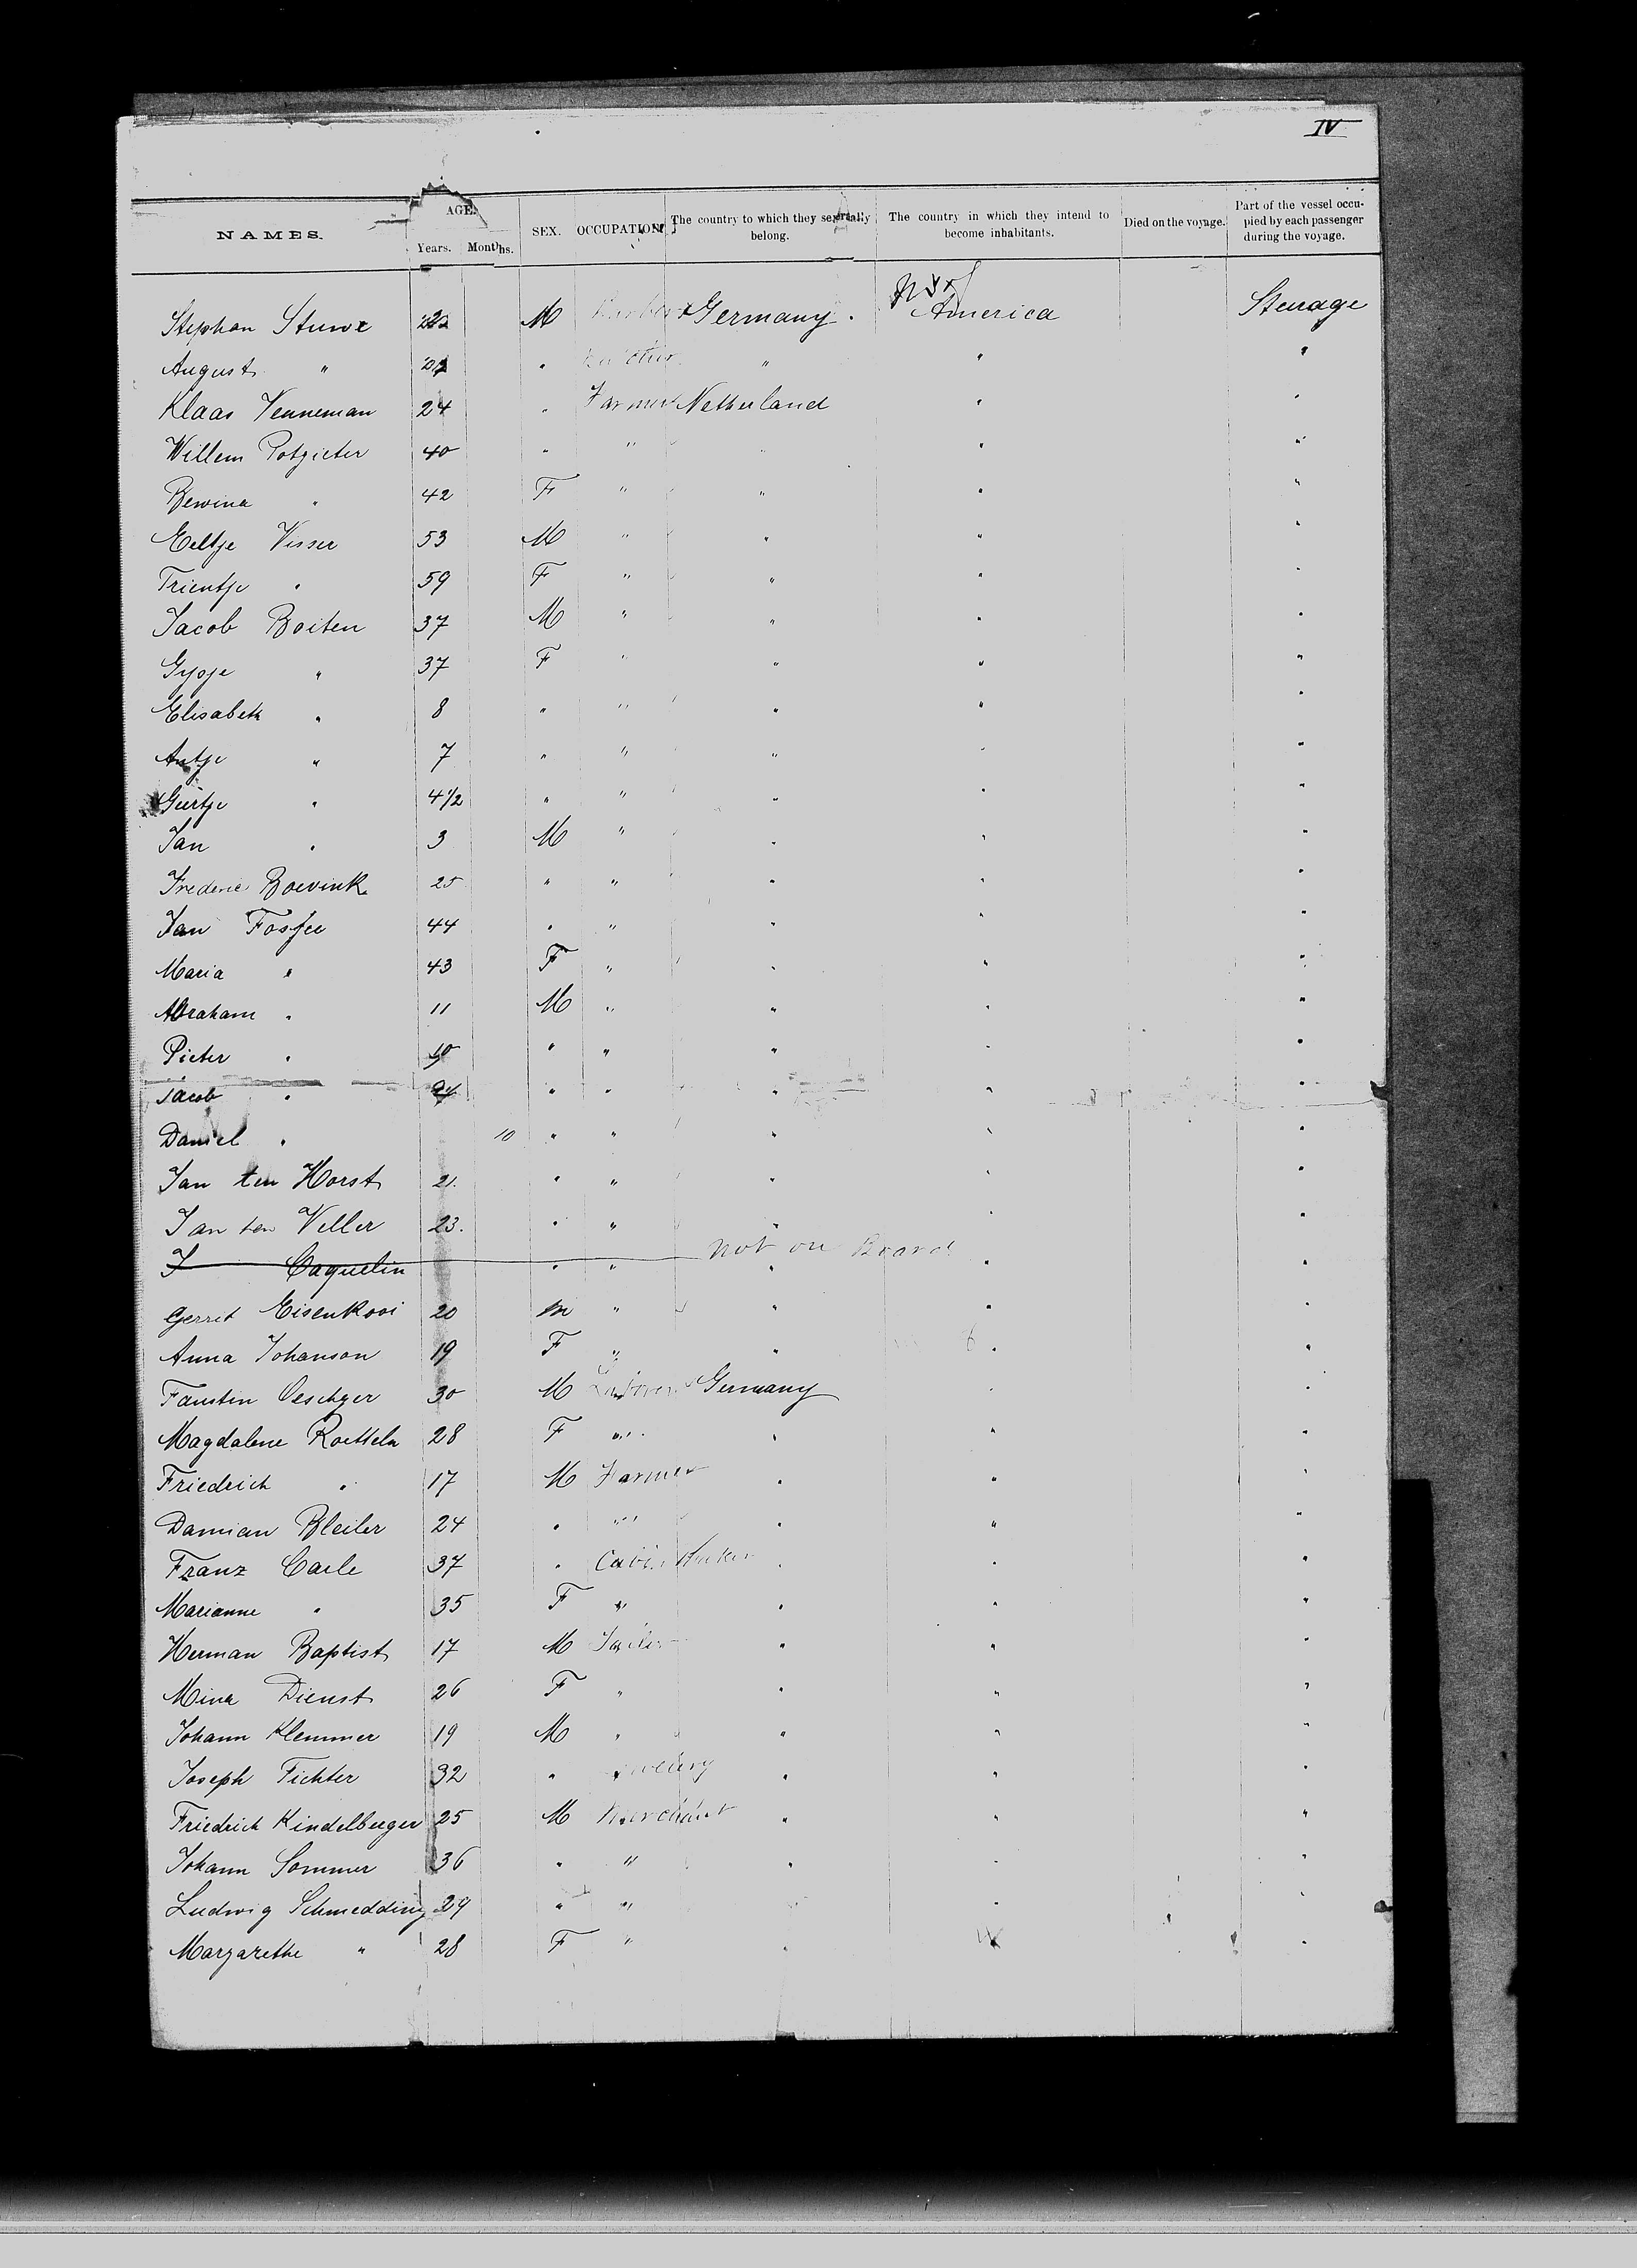 IV
NAMES. AGE. Years. Months. SEX. OCCUPATION. The country to which they severally belong. The country in which they intend to become inhabitants. Died on the voyage. Part of the vessel occupied by each passenger during the voyage.
Stephan Stuwe 22 M Germany. America Steurage
August " " " " "
Klaas Venneman 24 " Farmer Netherland " "
Willem Potgieter 40 " " " " "
Berwina " 42 F " " " "
Eeltje Visser 53 M " " " "
Trientje " 59 F " " " "
Jacob Boiten 37 M " " " "
" 37 F " " " "
Elisabeth " 8 " " " " "
Antje " 7 " " " " "
Geertje " 4 1/2 " " " " "
Jan " 3 M " " " "
Frederic Boevink 25 " " " " "
Jan Fosfee 44 " " " " "
Maria " 43 F " " " "
Abraham " 11 M " " " "
Pieter " 10 " " " " "
Jacob " " " " " "
Daniel " 10 " " " " "
Jan ten Horst 21. " " " " "
Jan ten Veller 23. " " " " "
J Caquelin " " not on Board " " "
Gerrit Eisenkooi 20 m " " " "
Anna Johanson 19 F " " " "
Faustin Oeschger 30 M Laborer Germany " "
Magdalene Roetteln 28 F " " " "
Friedrich " 17 M Farmer " " "
Damian Bleiler 24 " " " " "
Franz Carle 37 " " " "
Marianne " 35 F " " " "
Herman Baptist 17 M Tailor " " "
Mina Dienst 26 F " " " "
Johann Klemmer 19 M " " " "
Joseph Fichter 32 " " " "
Friedrich Kindelberger 25 M Merchant " " "
Johann Sommer 36 " " " " "
Ludwig Schmedding 29 " " " " "
Margarethe " 28 F " " " "